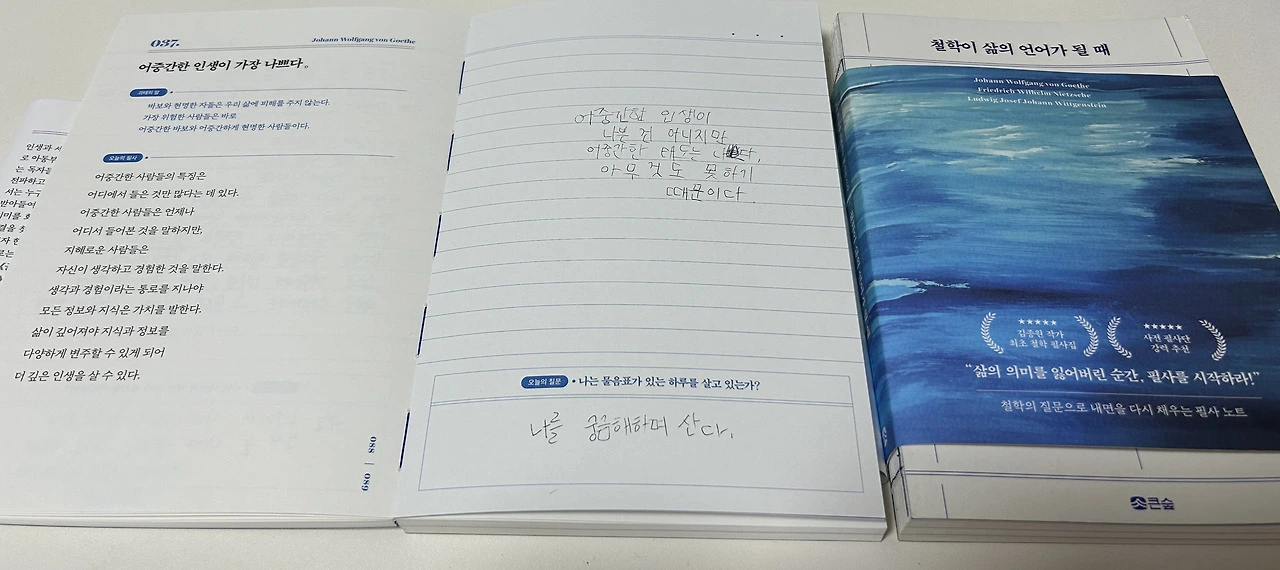 037.
Johann Wolfgang von Goethe
어중간한 인생이 가장 나쁘다。
괴테의 말
바보와 현명한 자들은 우리 삶에 피해를 주지 않는다.
가장 위험한 사람들은 바로
어중간한 바보와 어중간하게 현명한 사람들이다.
오늘의 필사
어중간한 사람들의 특징은
어디에서 들은 것만 많다는 데 있다.
어중간한 사람들은 언제나
어디서 들어본 것을 말하지만,
지혜로운 사람들은
자신이 생각하고 경험한 것을 말한다.
생각과 경험이라는 통로를 지나야
모든 정보와 지식은 가치를 발한다.
삶이 깊어져야 지식과 정보를
다양하게 변주할 수 있게 되어
더 깊은 인생을 살 수 있다.
088 | 089
어중간한 인생이
나쁜 건 아니지만
어중간한 태도는
아무것도 못하기
때문이다.
오늘의 질문 • 나는 물음표가 있는 하루를 살고 있는가?
나를 궁금해하며 산다.
철학이 삶의 언어가 될 때
Johann Wolfgang von Goethe
Friedrich Wilhelm Nietzsche
Ludwig Josef Johann Wittgenstein
★★★★★
김종원 작가
최초 철학 필사집
★★★★★
사전 필사단
강력 추천
“삶의 의미를 잃어버린 순간, 필사를 시작하라!”
철학의 질문으로 내면을 다시 채우는 필사 노트
큰숲